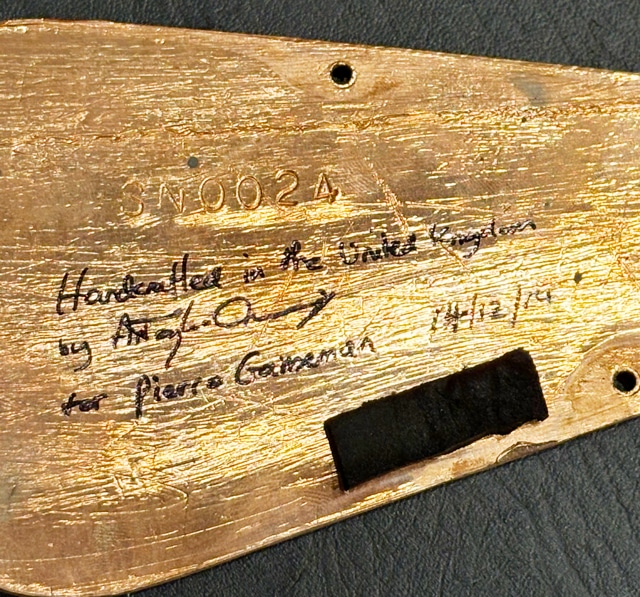 SN0024
Handcrafted in the United Kingdom
by
for Pierre 14/12/